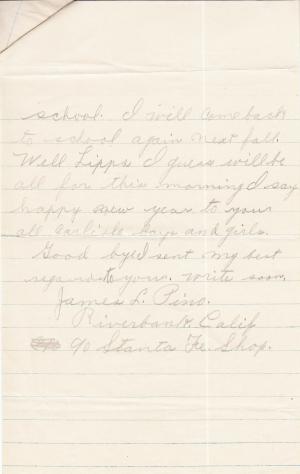 school. I will come back
to school again next fall.
Well Lipps I guess will be
all for this morning I say
happy new year to your
all Carlisle boys and girls.
Good bye I sent my best
regard to your. write soon.
James L. Pino.
Riverbank, Calif
90 Stanta Fe. Shop.